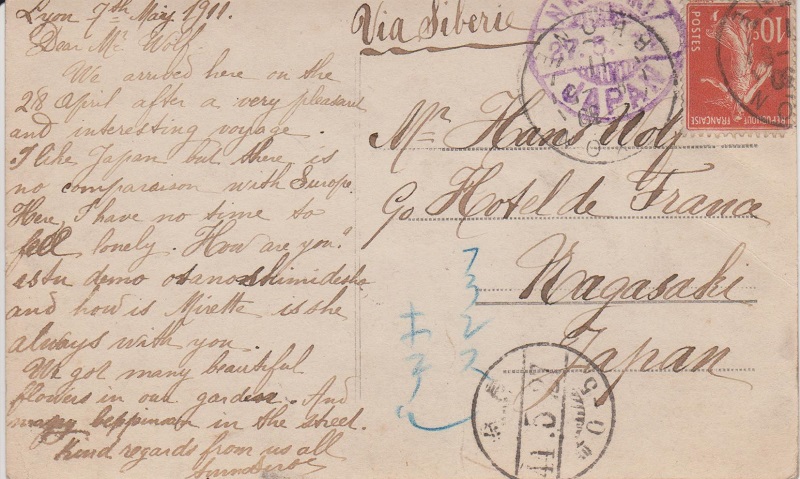 Lyon 7th May 1911.
Dear Mr Wolf,
We arrived here on the
28 April after a very pleasant
and interesting voyage.
I like Japan but there is
no comparaison with Europe.
Here I have no time to
feel lonely. How are you?
itsu demo otanoshimidesha
and how is Mirette is she
always with you.
We got many beautiful
flowers in our garden. And
many beppinsan in the street.
Kind regards from us all
Via Siberie
Mr Hans Wolf
c/o Hotel de France
Nagasaki
Japan
フランス
ホテル
JAPAN
10c
POSTES
REPUBLIQUE FRANÇAISE
RHONE
LYON